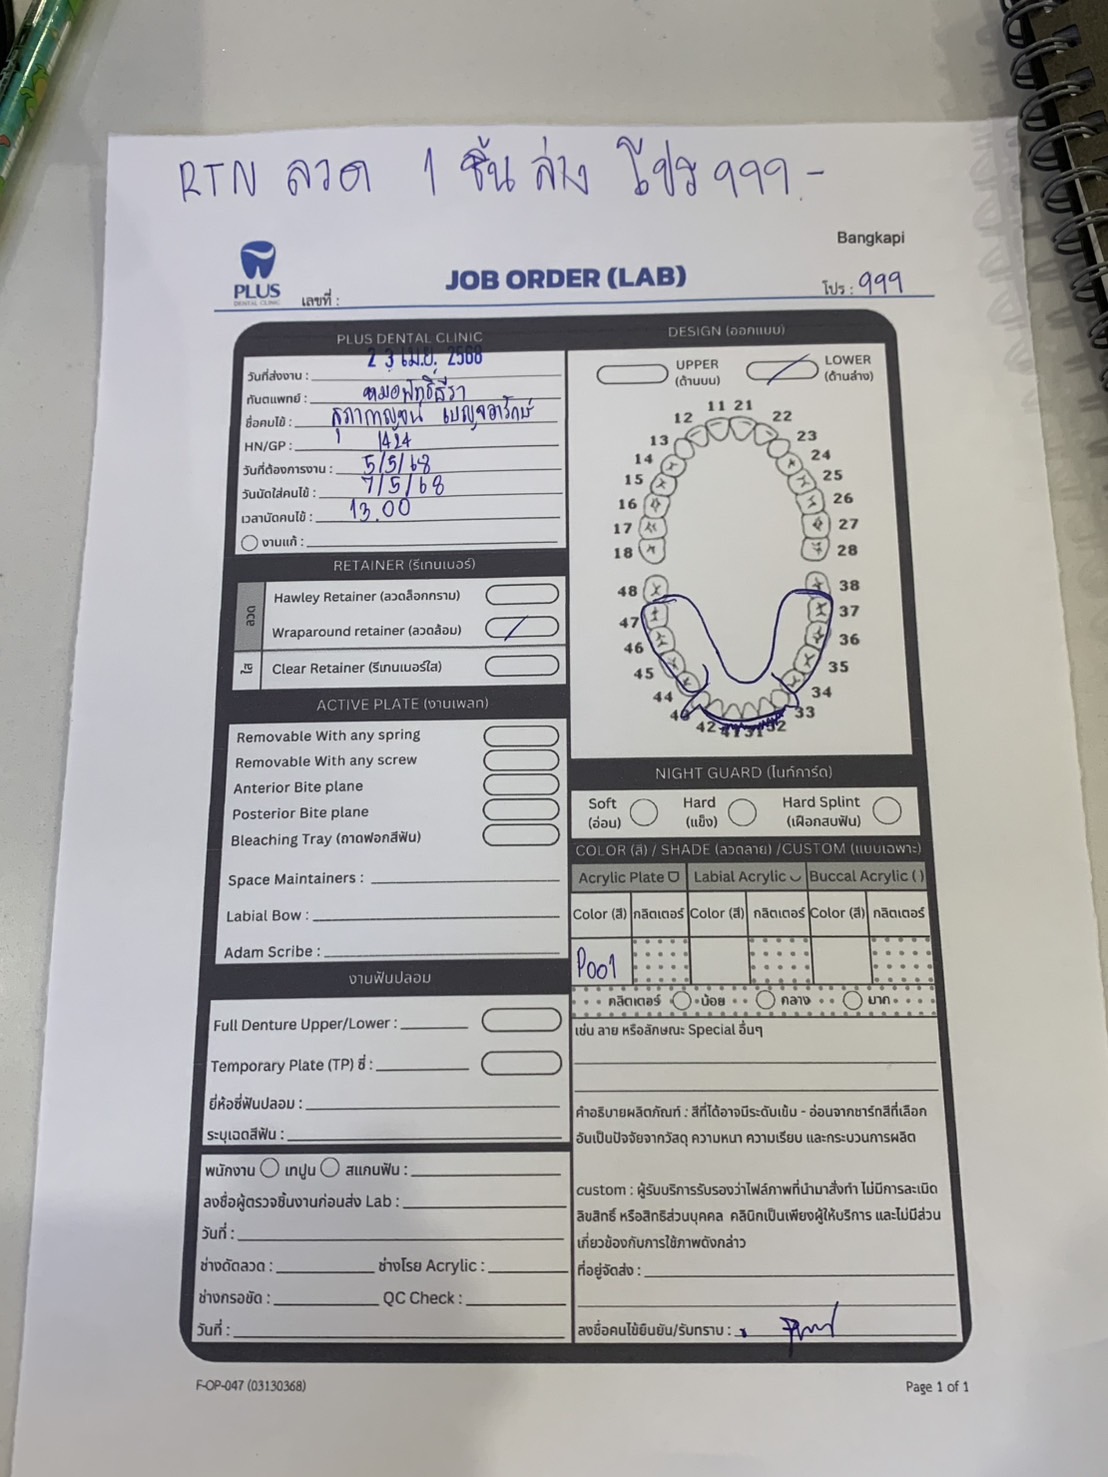 RTN ลวด 1 ชิ้น ล่าง โปร 999.-
Bangkapi
PLUS
DENTAL CLINIC
เลขที่ :
JOB ORDER (LAB)
โปร : 999
PLUS DENTAL CLINIC
วันที่ส่งงาน : 23 เม.ย. 2568
ทันตแพทย์ :
ชื่อคนไข้ : สุภากาญจน์
HN/GP : 1424
วันที่ต้องการงาน : 5/5/68
วันนัดใส่คนไข้ : 7/5/68
เวลานัดคนไข้ : 13.00
งานแก้ :
RETAINER (รีเทนเนอร์)
ลวด
Hawley Retainer (ลวดล็อกกราม)
Wraparound retainer (ลวดล้อม)
ใส
Clear Retainer (รีเทนเนอร์ใส)
ACTIVE PLATE (งานเพลท)
Removable With any spring
Removable With any screw
Anterior Bite plane
Posterior Bite plane
Bleaching Tray (ถาดฟอกสีฟัน)
Space Maintainers :
Labial Bow :
Adam Scribe :
งานฟันปลอม
Full Denture Upper/Lower :
Temporary Plate (TP) ซี่ :
ยี่ห้อซี่ฟันปลอม :
ระบุเฉดสีฟัน :
พนักงาน เทปูน สแกนฟัน :
ลงชื่อผู้ตรวจชิ้นงานก่อนส่ง Lab :
วันที่ :
ช่างดัดลวด : ช่างโรย Acrylic :
ช่างกรอขัด : QC Check :
วันที่ :
DESIGN (ออกแบบ)
UPPER
(ด้านบน)
LOWER
(ด้านล่าง)
11 21
12 22
13 23
14 24
15 25
16 26
17 27
18 28
48 38
47 37
46 36
45 35
44 34
43 33
42 41 31 32
NIGHT GUARD (ไนท์การ์ด)
Soft
(อ่อน)
Hard
(แข็ง)
Hard Splint
(เฝือกสบฟัน)
COLOR (สี) / SHADE (ลวดลาย) /CUSTOM (แบบเฉพาะ)
Acrylic Plate Labial Acrylic Buccal Acrylic ( )
Color (สี) กลิตเตอร์ Color (สี) กลิตเตอร์ Color (สี) กลิตเตอร์
P001
กลิตเตอร์ น้อย กลาง มาก
เช่น ลาย หรือลักษณะ Special อื่นๆ
คำอธิบายผลิตภัณฑ์ : สีที่ได้อาจมีระดับเข้ม - อ่อนจากชาร์ทสีที่เลือก
อันเป็นปัจจัยจากวัสดุ ความหนา ความเรียบ และกระบวนการผลิต
custom : ผู้รับบริการรับรองว่าไฟล์ภาพที่นำมาสั่งทำ ไม่มีการละเมิด
ลิขสิทธิ์ หรือสิทธิส่วนบุคคล คลินิกเป็นเพียงผู้ให้บริการ และไม่มีส่วน
เกี่ยวข้องกับการใช้ภาพดังกล่าว
ที่อยู่จัดส่ง :
ลงชื่อคนไข้ยืนยัน/รับทราบ :
F-OP-047 (03130368)
Page 1 of 1